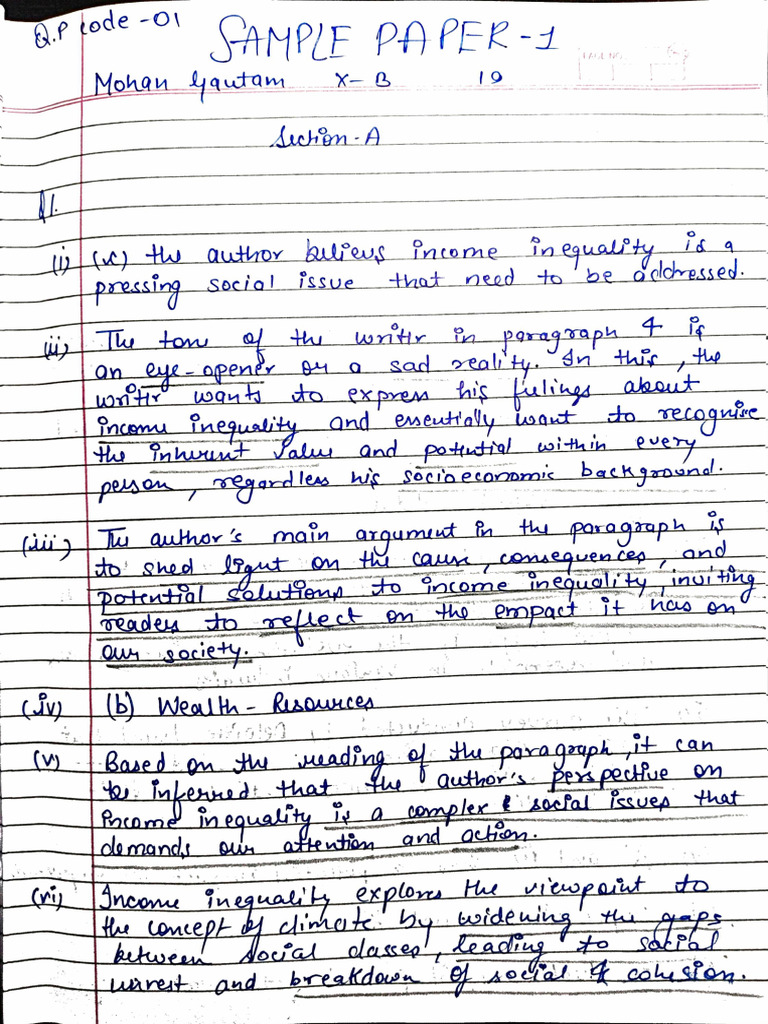 Q.P code - 01
SAMPLE PAPER - 1
Mohan Gautam X - B 19
Section - A
Q1.
(i) (c) the author believes income inequality is a
pressing social issue that need to be addressed.
(ii) The tone of the writer in paragraph 4 is
an eye-opener or a sad reality. In this, the
writer wants to express his feelings about
income inequality and essentially want to recognise
the inherent value and potential within every
person, regardless his socioeconomic background.
(iii) The author's main argument in the paragraph is
to shed light on the cause, consequences, and
potential solutions to income inequality, inviting
readers to reflect on the empact it has on
our society.
(iv) (b) Wealth - Resources
(v) Based on the reading of the paragraph, it can
be inferred that the author's perspective on
income inequality is a complex & social issues that
demands our attention and action.
(vi) Income inequality explores the viewpoint to
the concept of climate by widening the gaps
between social classes, leading to social
unrest and breakdown of social & cohesion.